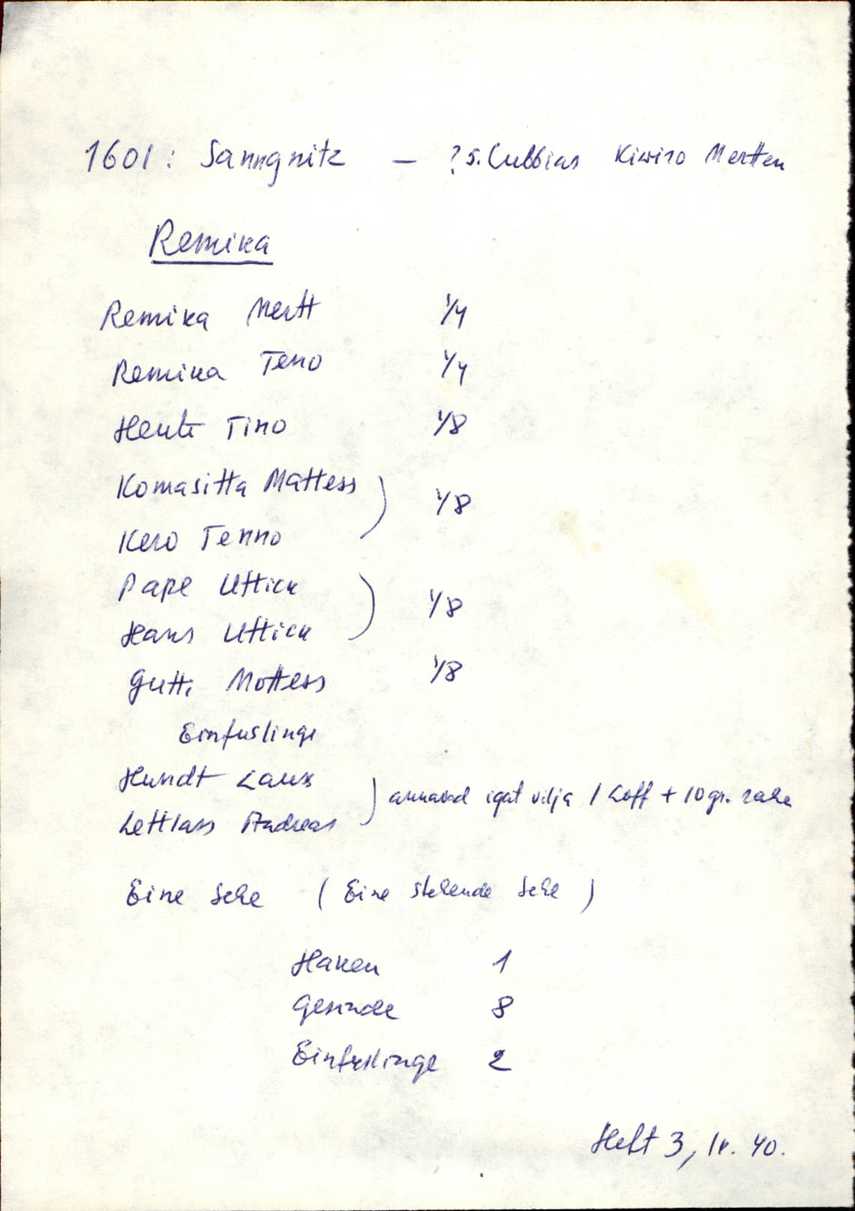 1601: Sanngnitz — ? s. Cubbias Kiwiro Mertten
Remika
Remika Mertt 1/4
Remika Teno 1/4
Tino 1/8
Komasitta Mattess
1/8
Kero Tenno
Pape Uttick
1/8
Hans Uttick
Gutti Mottess 1/8
Einfuslinge
Hundt Laux
annavad igat vilja 1 Loff + 10 gr. raha
Lettlass Andreas
Eine Sehe (Eine stehende Sehe)
Haken 1
Gesinde 8
Einfuslinge 2
Heft 3, lk. 40.